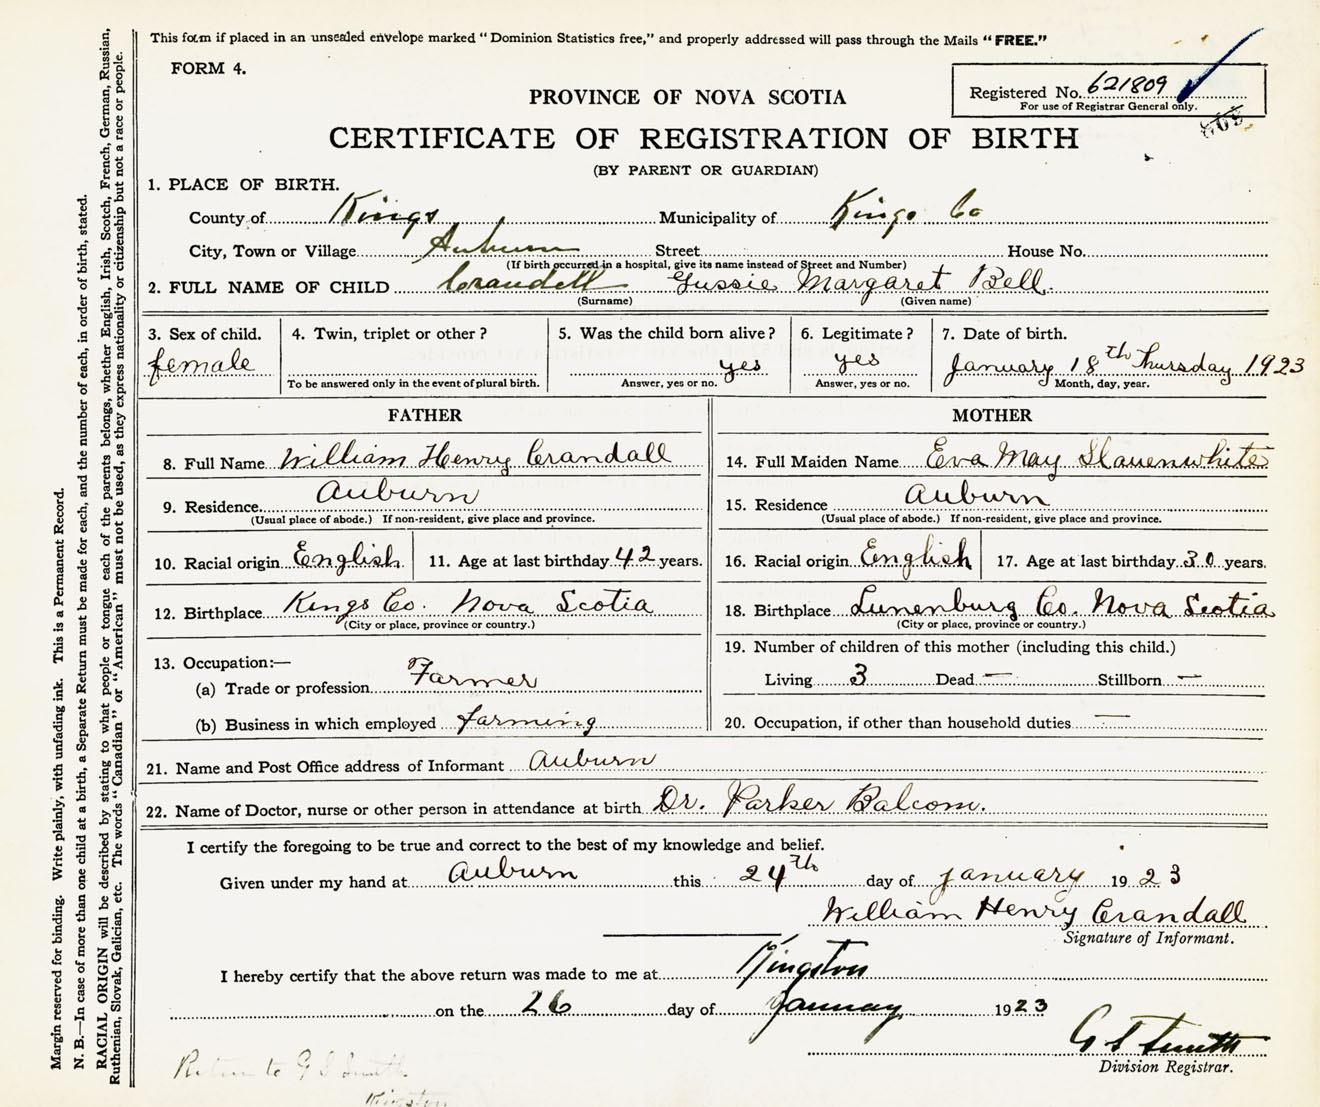 This form if placed in an unsealed envelope marked "Dominion Statistics free," and properly addressed will pass through the Mails "FREE."
FORM 4.
Registered No. 621809
For use of Registrar General only.
PROVINCE OF NOVA SCOTIA
CERTIFICATE OF REGISTRATION OF BIRTH
(BY PARENT OR GUARDIAN)
1. PLACE OF BIRTH.
County of Kings Municipality of Kings Co
City, Town or Village Auburn Street House No.
(If birth occurred in a hospital, give its name instead of Street and Number)
2. FULL NAME OF CHILD Crandall Gussie Margaret Bell.
(Surname) (Given name)
3. Sex of child. 4. Twin, triplet or other? 5. Was the child born alive? 6. Legitimate? 7. Date of birth.
female yes yes January 18th Thursday 1923
To be answered only in the event of plural birth. Answer, yes or no. Answer, yes or no. Month, day, year.
FATHER MOTHER
8. Full Name William Henry Crandall 14. Full Maiden Name Eva May Slauenwhite
9. Residence. Auburn 15. Residence Auburn
(Usual place of abode.) If non-resident, give place and province. (Usual place of abode.) If non-resident, give place and province.
10. Racial origin English. 11. Age at last birthday 42 years. 16. Racial origin English 17. Age at last birthday 30 years.
12. Birthplace Kings Co. Nova Scotia 18. Birthplace Lunenburg Co. Nova Scotia
(City or place, province or country.) (City or place, province or country.)
13. Occupation:— 19. Number of children of this mother (including this child.)
(a) Trade or profession Farmer Living 3 Dead — Stillborn —
(b) Business in which employed farming 20. Occupation, if other than household duties —
21. Name and Post Office address of Informant Auburn
22. Name of Doctor, nurse or other person in attendance at birth Dr. Parker Balcom.
I certify the foregoing to be true and correct to the best of my knowledge and belief.
Given under my hand at Auburn this 24th day of January 1923
William Henry Crandall
Signature of Informant.
I hereby certify that the above return was made to me at Kingston
on the 26 day of January 1923
G S Smith
Division Registrar.
Return to G S Smith
Kingston
Margin reserved for binding. Write plainly, with unfading ink. This is a Permanent Record.
N. B.—In case of more than one child at a birth, a Separate Return must be made for each, and the number of each, in order of birth, stated.
RACIAL ORIGIN will be described by stating to what people or tongue each of the parents belongs, whether English, Irish, Scotch, French, German, Russian,
Ruthenian, Slovak, Galician, etc. The words "Canadian" or "American" must not be used, as they express nationality or citizenship but not a race or people.